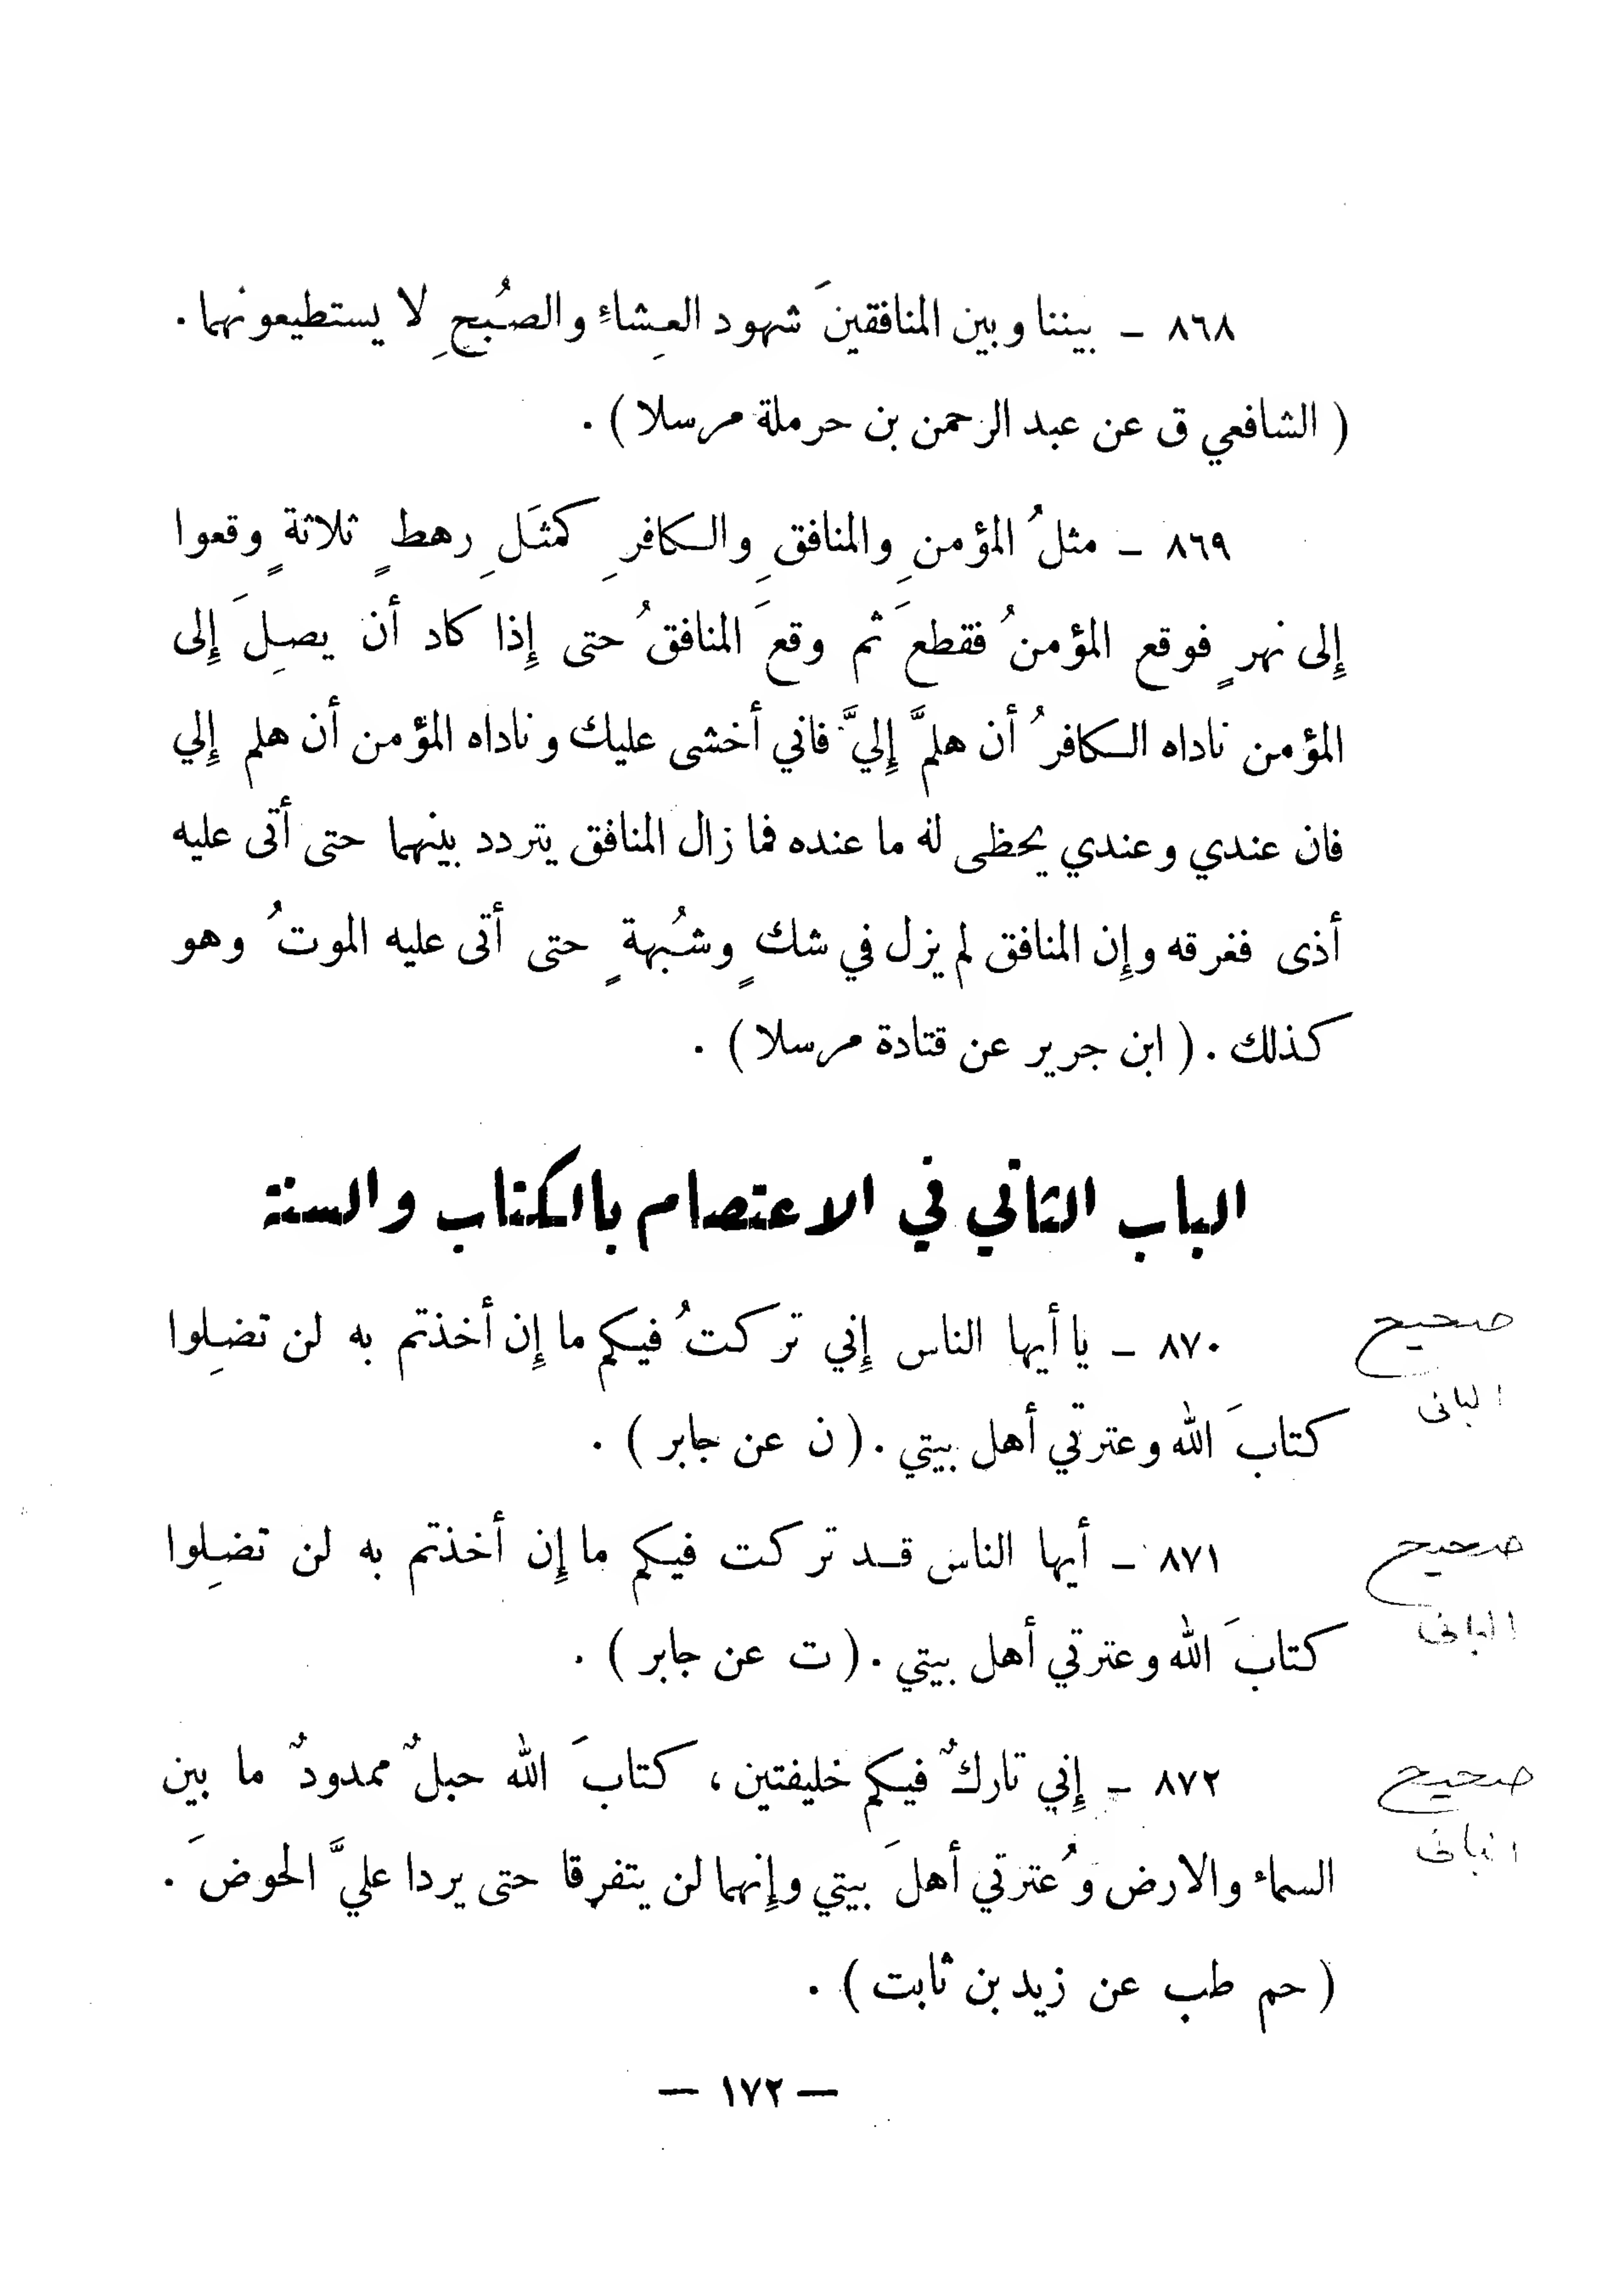 ٨٦٨ ــ بيننا وبين المنافقينَ شهود العِشاءِ والصُبحِ لا يستطيعونهما .
( الشافعي ق عن عبد الرحمن بن حرملة مرسلا ) .
٨٦٩ ــ مثلُ المؤمنِ والمنافقِ والكافرِ كمثَلِ رهطٍ ثلاثةٍ وقعوا
إِلى نهرٍ فوقع المؤمنُ فقطعَ ثم وقعَ المنافقُ حتى إِذا كاد أن يصِلَ إِلى
المؤمن ناداه الكافرُ أن هلمَّ إِليَّ فاني أخشى عليك وناداه المؤمن أن هلم إِلي
فان عندي وعندي يحظى له ما عنده فما زال المنافق يتردد بينهما حتى أتى عليه
أذى فغرقه وإِن المنافق لم يزل في شكٍ وشُبهةٍ حتى أتى عليه الموتُ وهو
كذلك . ( ابن جرير عن قتادة مرسلا ) .
الباب الثاني في الاعتصام بالكتاب والسنة
صحيح ٨٧٠ ــ يا أيها الناس إِني تركتُ فيكم ما إِن أخذتم به لن تضِلوا
البانى
كتابَ الله وعترتي أهل بيتي . ( ن عن جابر ) .
صحيح ٨٧١ ــ أيها الناس قد تركت فيكم ما إِن أخذتم به لن تضِلوا
البانى
كتابَ الله وعترتي أهل بيتي . ( ت عن جابر ) .
صحيح ٨٧٢ ــ إِني تاركٌ فيكم خليفتين ، كتابَ الله حبلٌ ممدودٌ ما بين
البانى
السماء والارض وعُترتي أهلَ بيتي وإِنهما لن يتفرقا حتى يردا عليَّ الحوضَ .
( حم طب عن زيد بن ثابت ) .
— ١٧٢ —